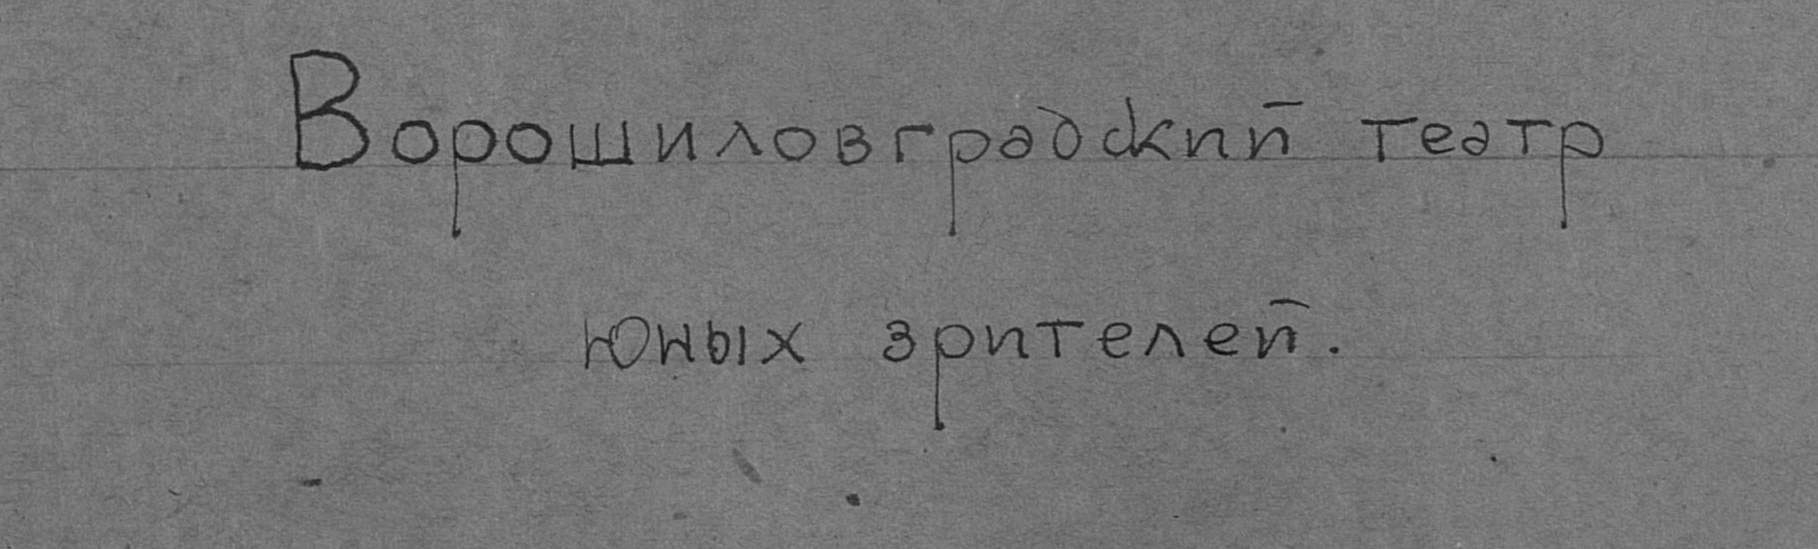 Ворошиловградский театр
юных зрителей.